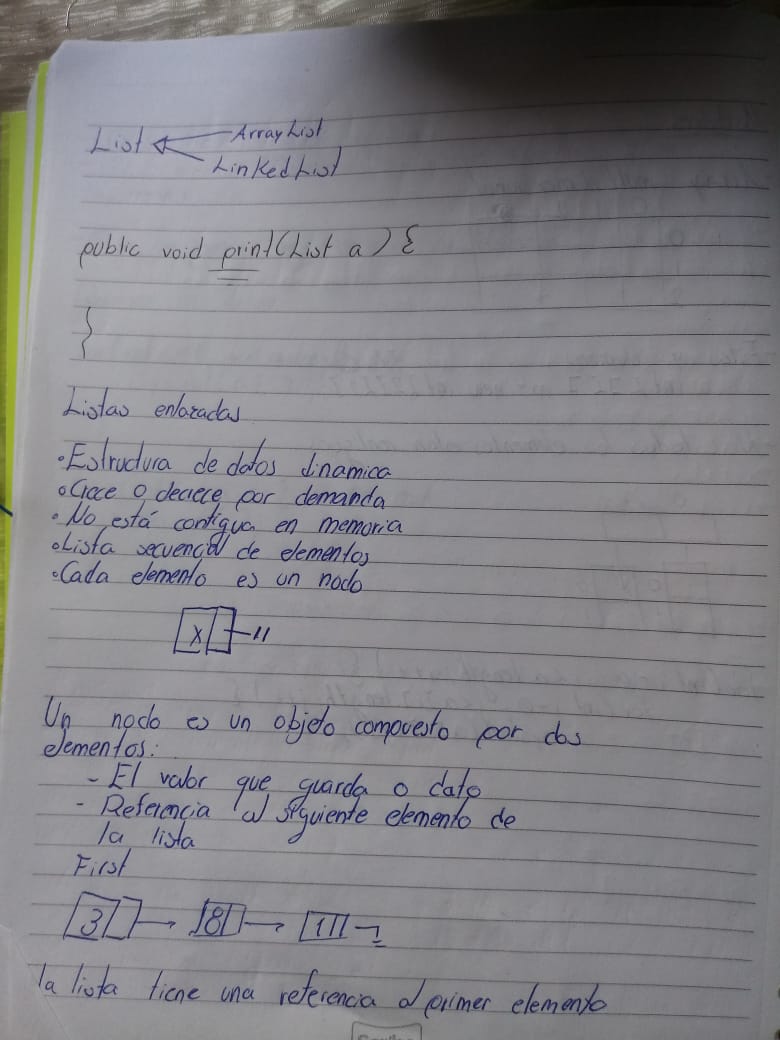 List ArrayList
LinkedList
public void print(List a) {
}
Listas enlazadas
• Estructura de datos dinamica
• Crece o decrece por demanda
• No está contigua en memoria
• Lista secuencial de elementos
• Cada elemento es un nodo
X
Un nodo es un objeto compuesto por dos
elementos:
- El valor que guarda o dato
- Referencia al siguiente elemento de
la lista
First
3 8 1
la lista tiene una referencia al primer elemento